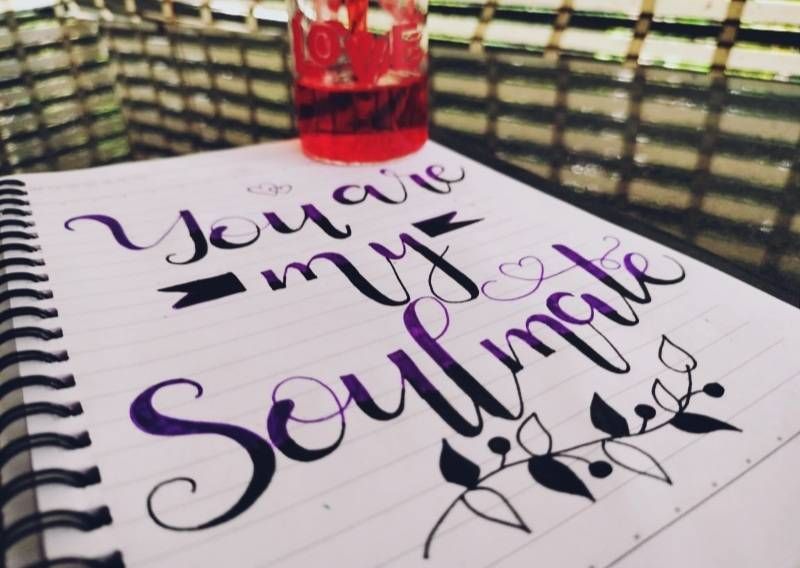 LOVE
You are
my
Soulmate